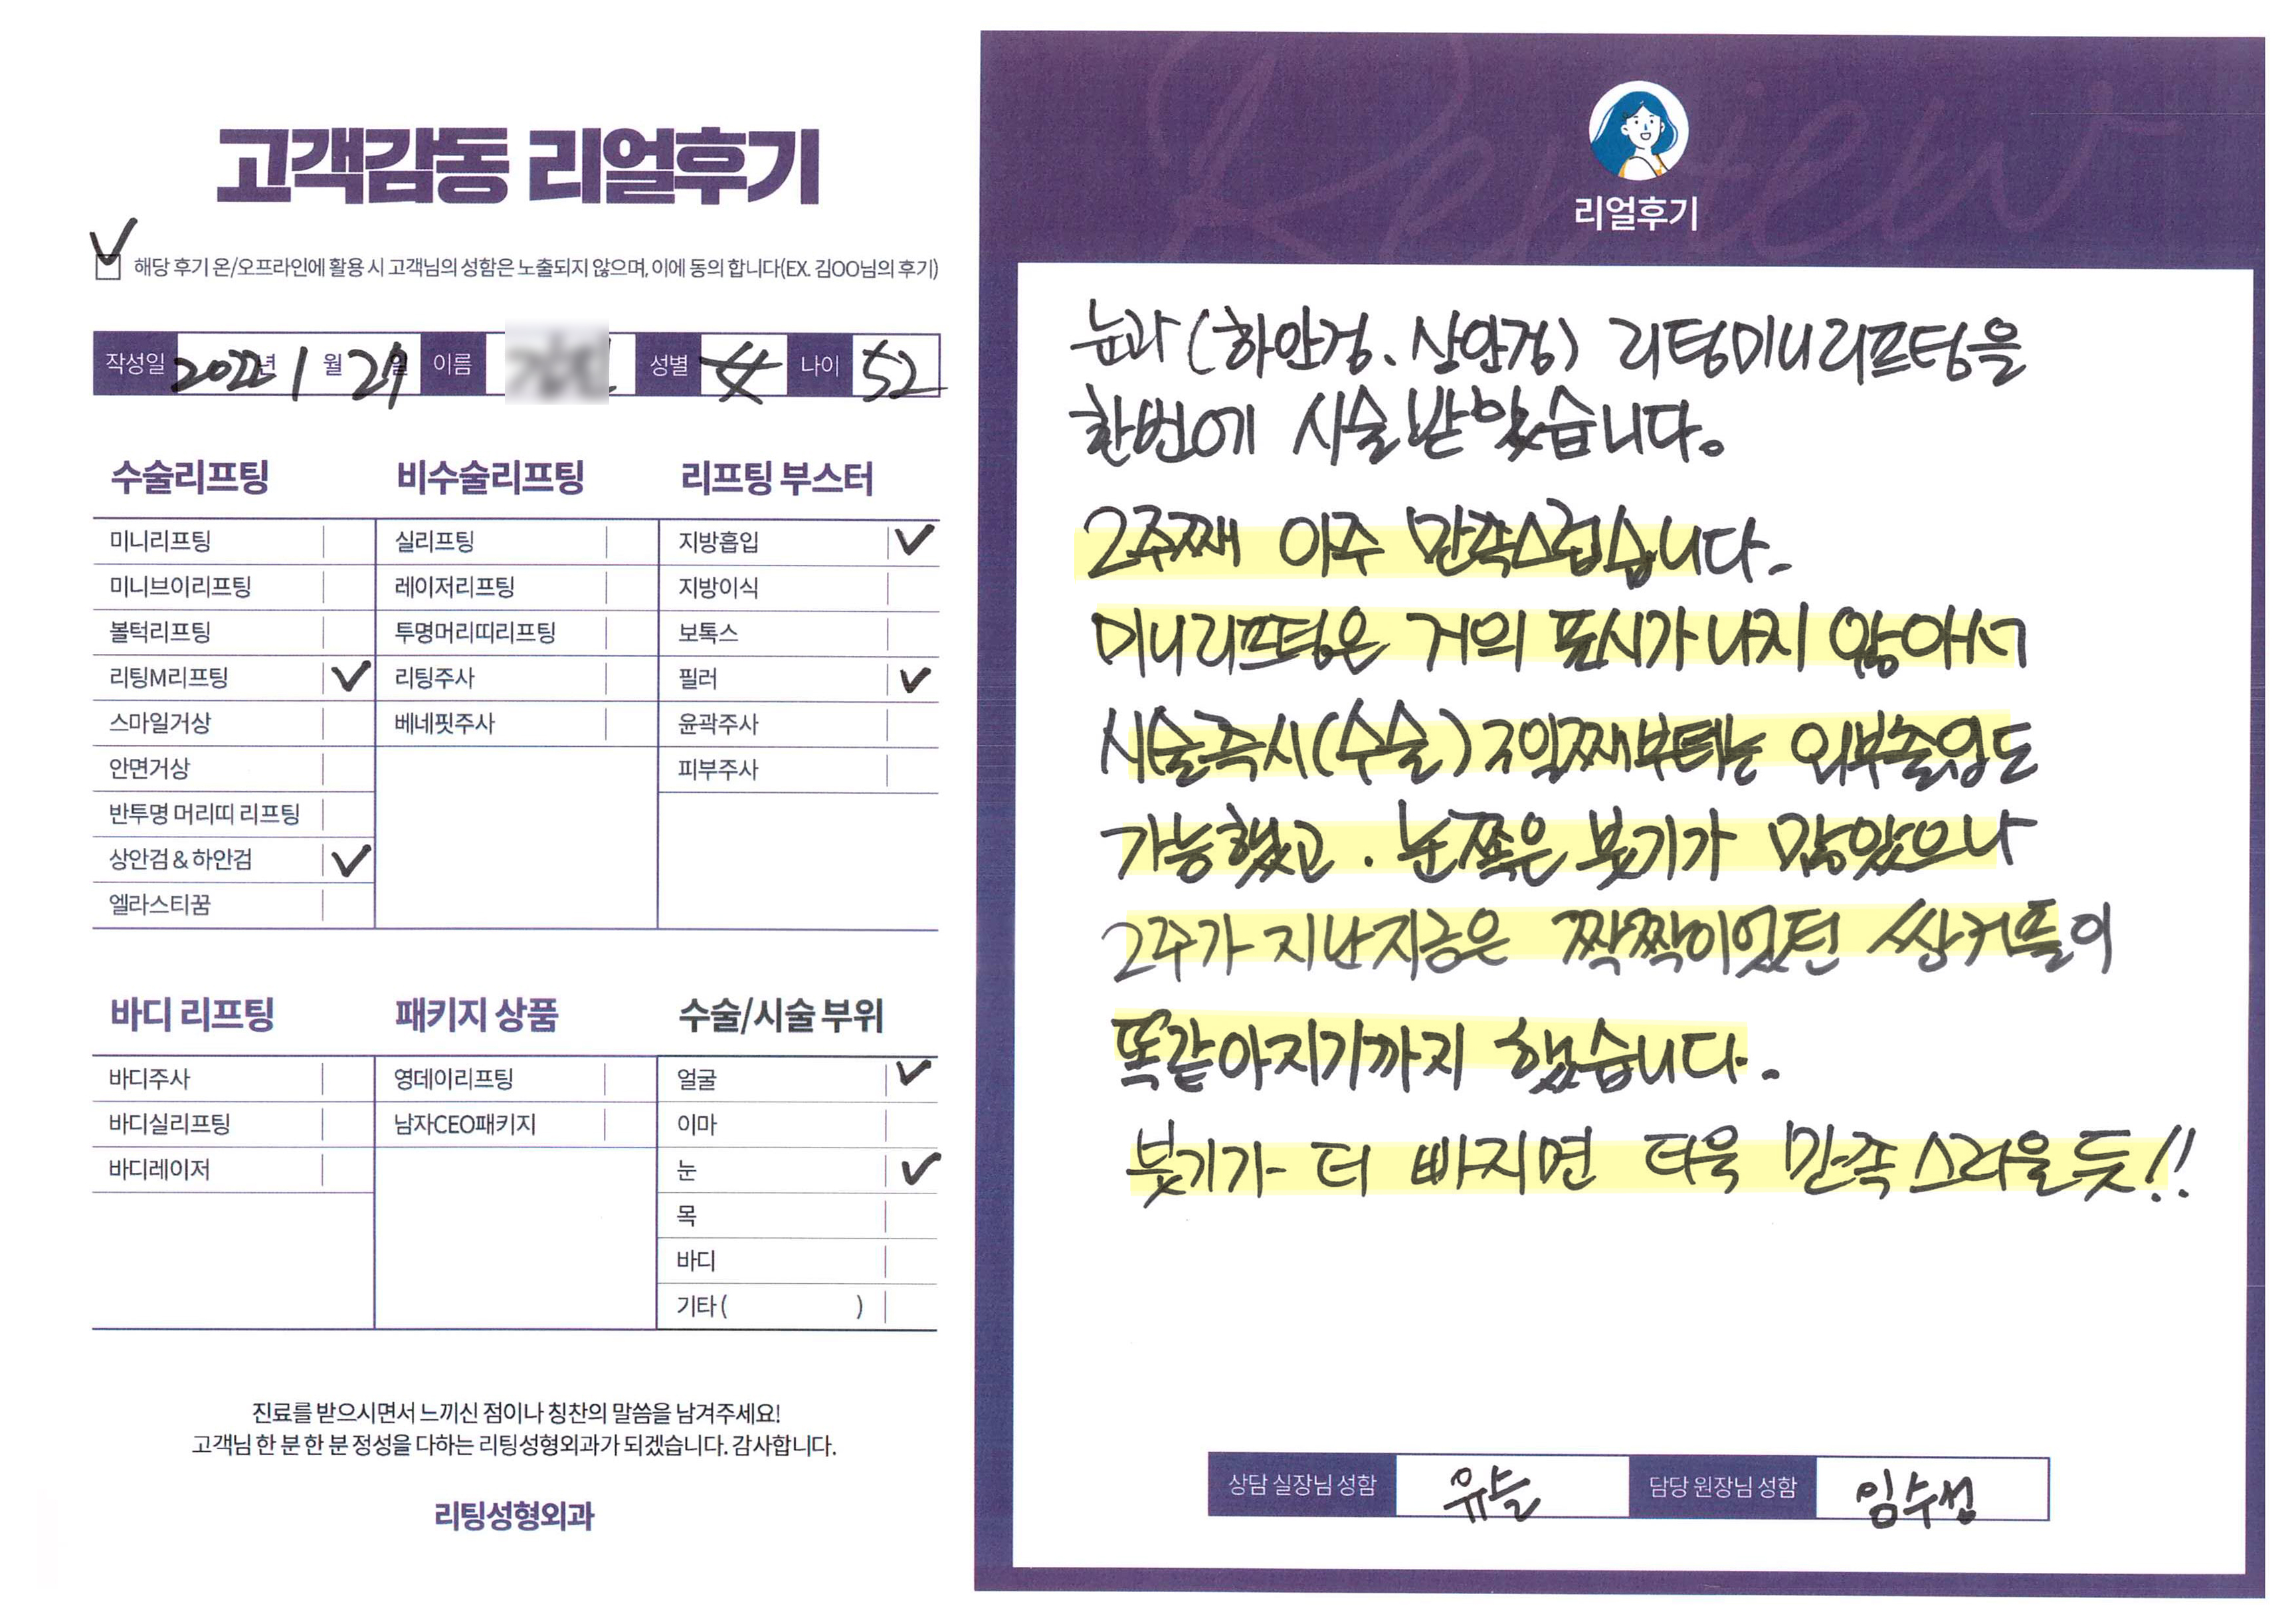 고객감동 리얼후기
해당 후기 온/오프라인에 활용 시 고객님의 성함은 노출되지 않으며, 이에 동의 합니다(EX. 김OO님의 후기)
작성일 2022년 1월 21일 이름 성별 나이 52
수술리프팅
미니리프팅
미니브이리프팅
볼턱리프팅
리팅M리프팅
스마일거상
안면거상
반투명 머리띠 리프팅
상안검 & 하안검
엘라스티꿈
비수술리프팅
실리프팅
레이저리프팅
투명머리띠리프팅
리팅주사
베네핏주사
리프팅 부스터
지방흡입
지방이식
보톡스
필러
윤곽주사
피부주사
바디 리프팅
바디주사
바디실리프팅
바디레이저
패키지 상품
영데이리프팅
남자CEO패키지
수술/시술 부위
얼굴
이마
눈
목
바디
기타 ( )
진료를 받으시면서 느끼신 점이나 칭찬의 말씀을 남겨주세요!
고객님 한 분 한 분 정성을 다하는 리팅성형외과가 되겠습니다. 감사합니다.
리팅성형외과
Review
리얼후기
눈과 (하안검, 상안검) 리팅미니리프팅을
한번에 시술받았습니다.
2주째 아주 만족스럽습니다.
미니리프팅은 거의 표시가 나지 않아서
시술즉시(수술) 3일째부터는 외부출입도
가능했고. 눈쪽은 붓기가 많았으나
2주가 지난지금은 짝짝이었던 쌍커플이
똑같아지기까지 했습니다.
붓기가 더 빠지면 더욱 만족스러울듯!!
상담 실장님 성함 담당 원장님 성함 임수성